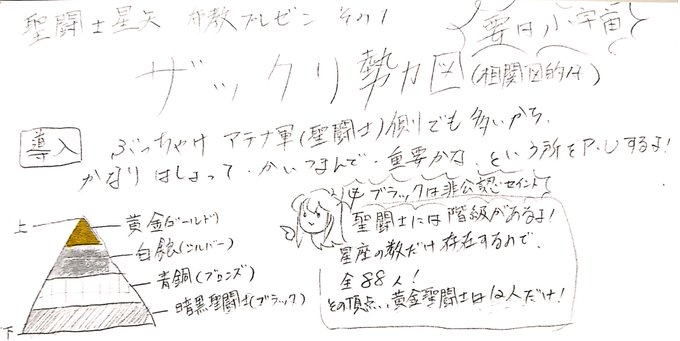 聖闘士星矢 布教プレゼン その1
要は小宇宙
ザックリ勢力図(相関図的な)
導入
ぶっちゃけ アテナ軍(聖闘士)側でも 多いから、
かなり はしょって・かいつまんで・重要かな、という所をP.Uするよ!
※ブラックは非公認セイントで
聖闘士には階級があるよ!
星座の数だけ存在するので、
全88人!
その頂点、黄金聖闘士は12人だけ!
上
黄金(ゴールド)
白銀(シルバー)
青銅(ブロンズ)
暗黒聖闘士(ブラック)
下